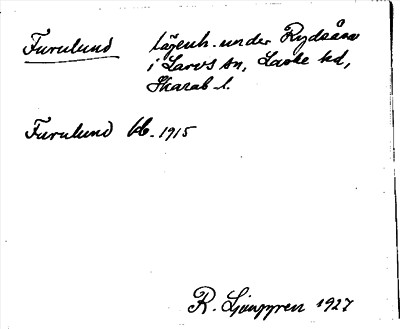 Furulund lägenh. under Rydsåsa
i Larvs sn, Laske hd,
Skarab. l.
Furulund kb. 1915
R. Ljunggren 1927